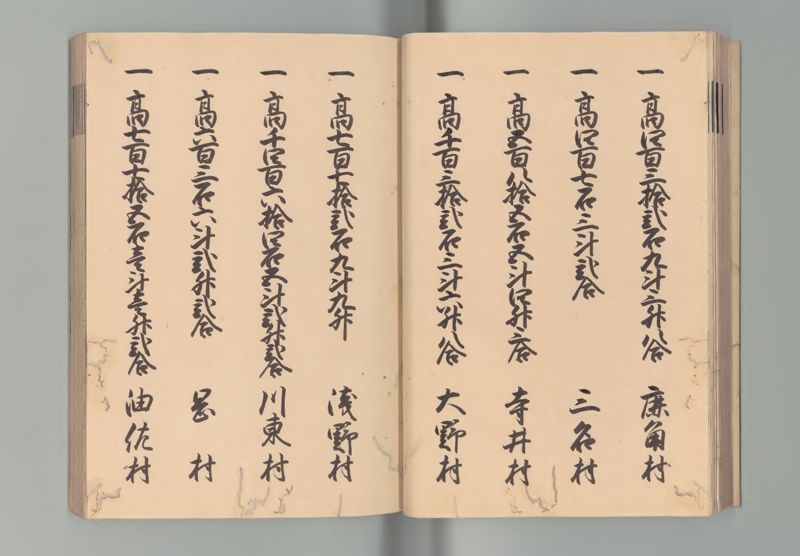 一 高四百三拾弐石九斗三升八合 鹿角村
一 高四百七石三斗弐合 三名村
一 高五百八拾五石五斗四升六合 寺井村
一 高千百三拾弐石三斗六升八合 大野村
一 高七百七拾弐石九斗九升 浅野村
一 高千四百六拾四石五斗弐升弐合 川東村
一 高六百三石六斗弐升弐合 岡村
一 高七百七拾五石壱斗壱升弐合 油佐村